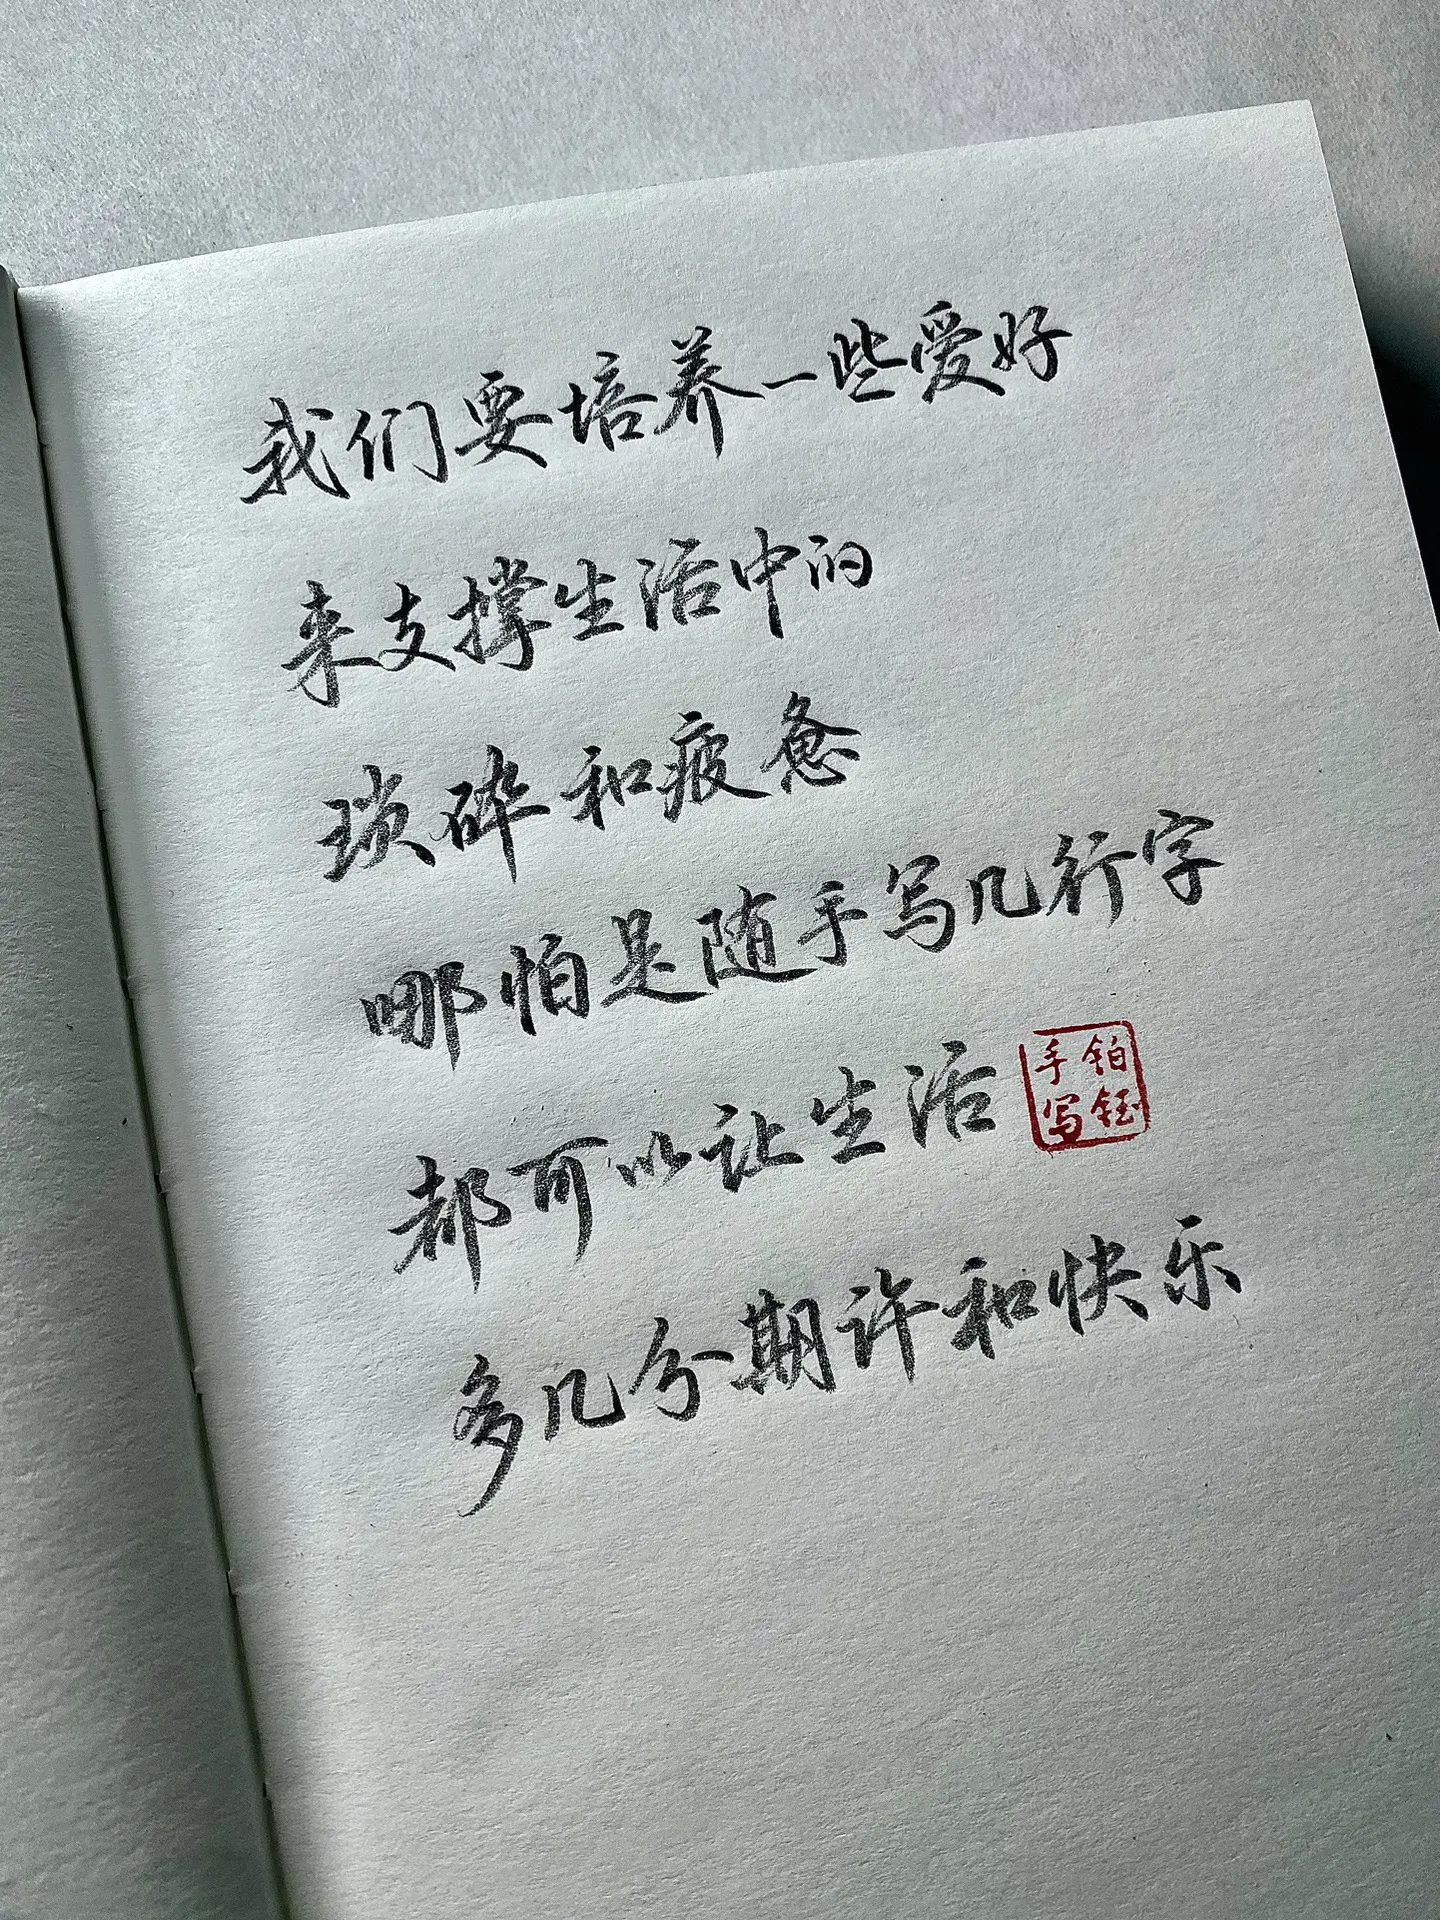 我们要培养一些爱好
来支撑生活中的
琐碎和疲惫
哪怕是随手写几行字
都可以让生活
铂钰
手写
多几分期许和快乐